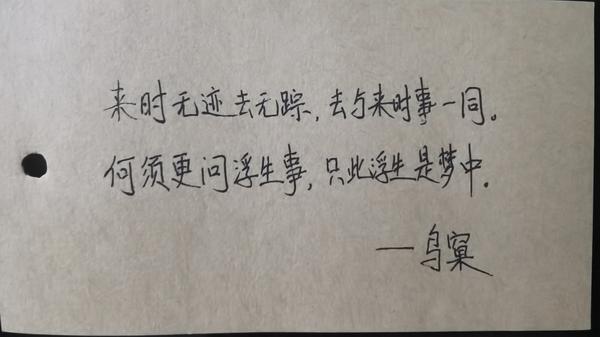 来时无迹去无踪，去与来时事一同。
何须更问浮生事，只此浮生是梦中。
——乌窠